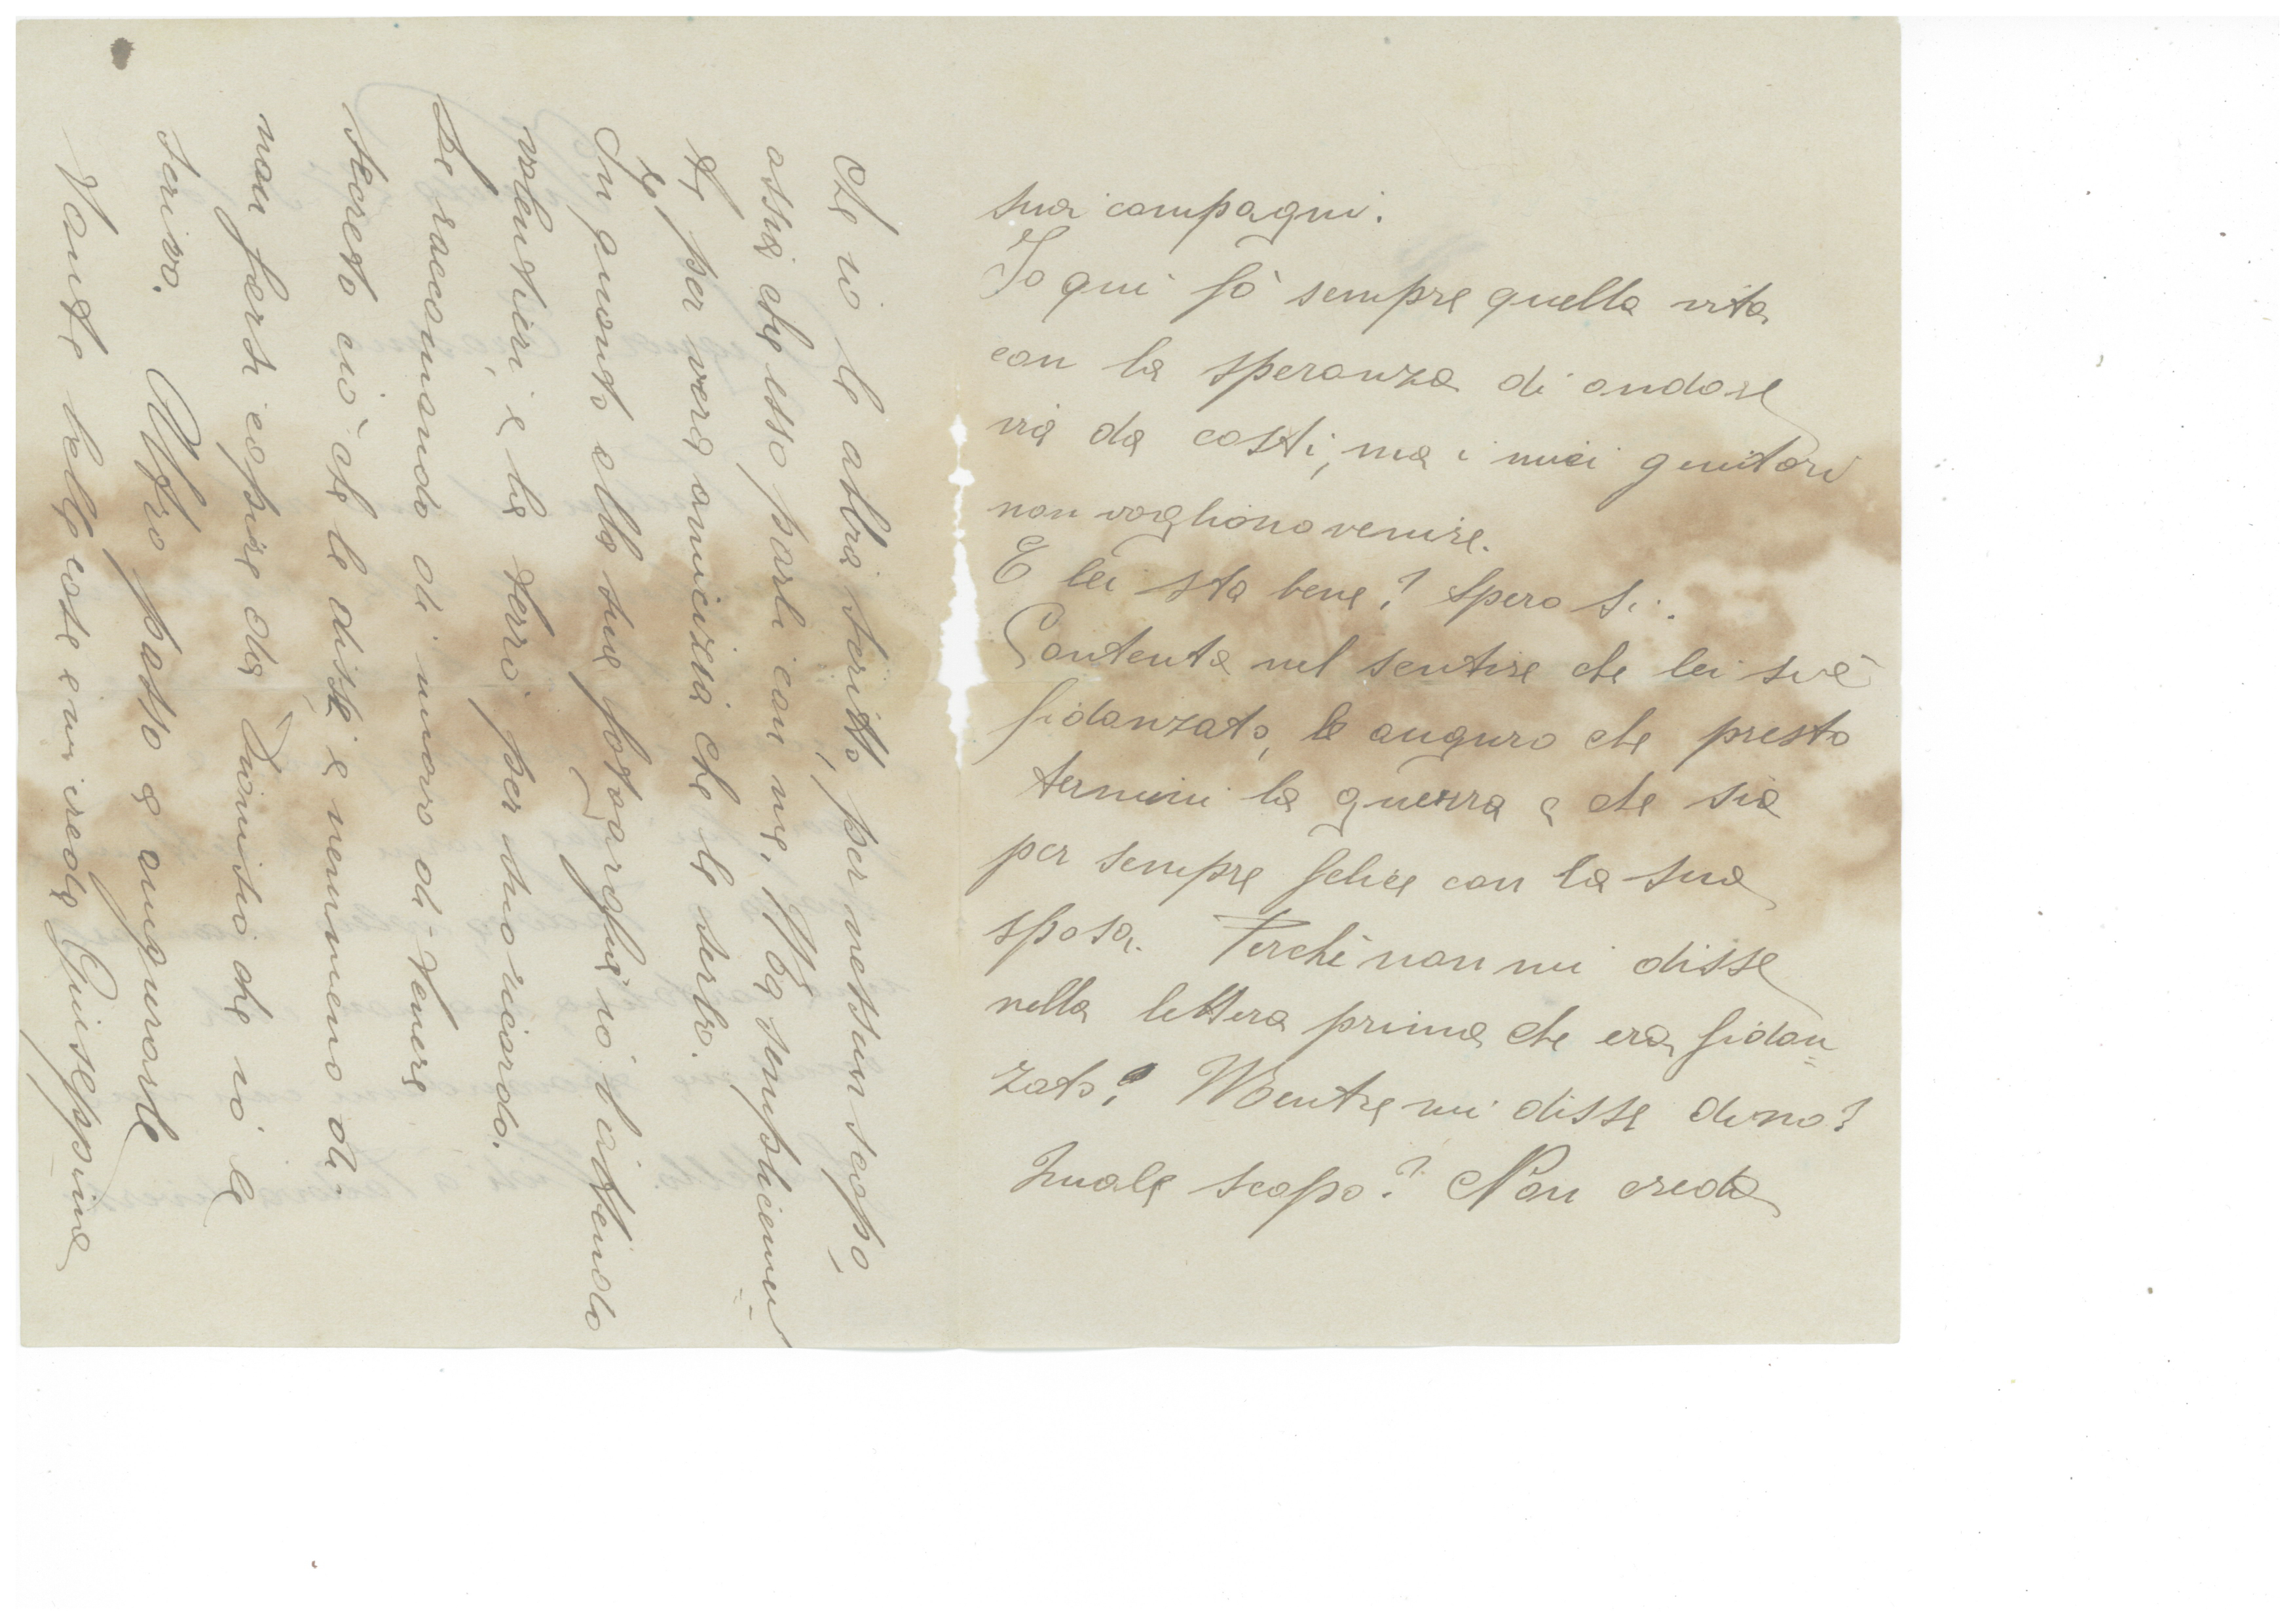 suoi compagni.
Io qui fò sempre quella vita
con la speranza di andare
via da costì, ma i miei genitori
non vogliono venire.
E lei sta bene? Spero si.
Contenta nel sentire che lei si è
fidanzato, le auguro che presto
termini la guerra e che sia
per sempre felice con la sua
sposa. Perchè non mi disse
nella lettera prima che era fidan=
zato? Mentre mi disse di no?
Quale scopo? Non creda
che io le abbia scritto, per nessun scopo,
ossia che esso parli con me, Ma semplicemen=
te per vera amicizia che le serbo.
In quanto alla sua fotoargfia io l'attendo
volentieri, e la terrò per suo ricordo.
Le raccomando di nuovo di tenere
secreto ciò che le dissi e nemmeno di
non farsi capire da Dionisio che io le
scrivo. Altro passo a augurarle
Tante belle cose e mi creda Giuseppina